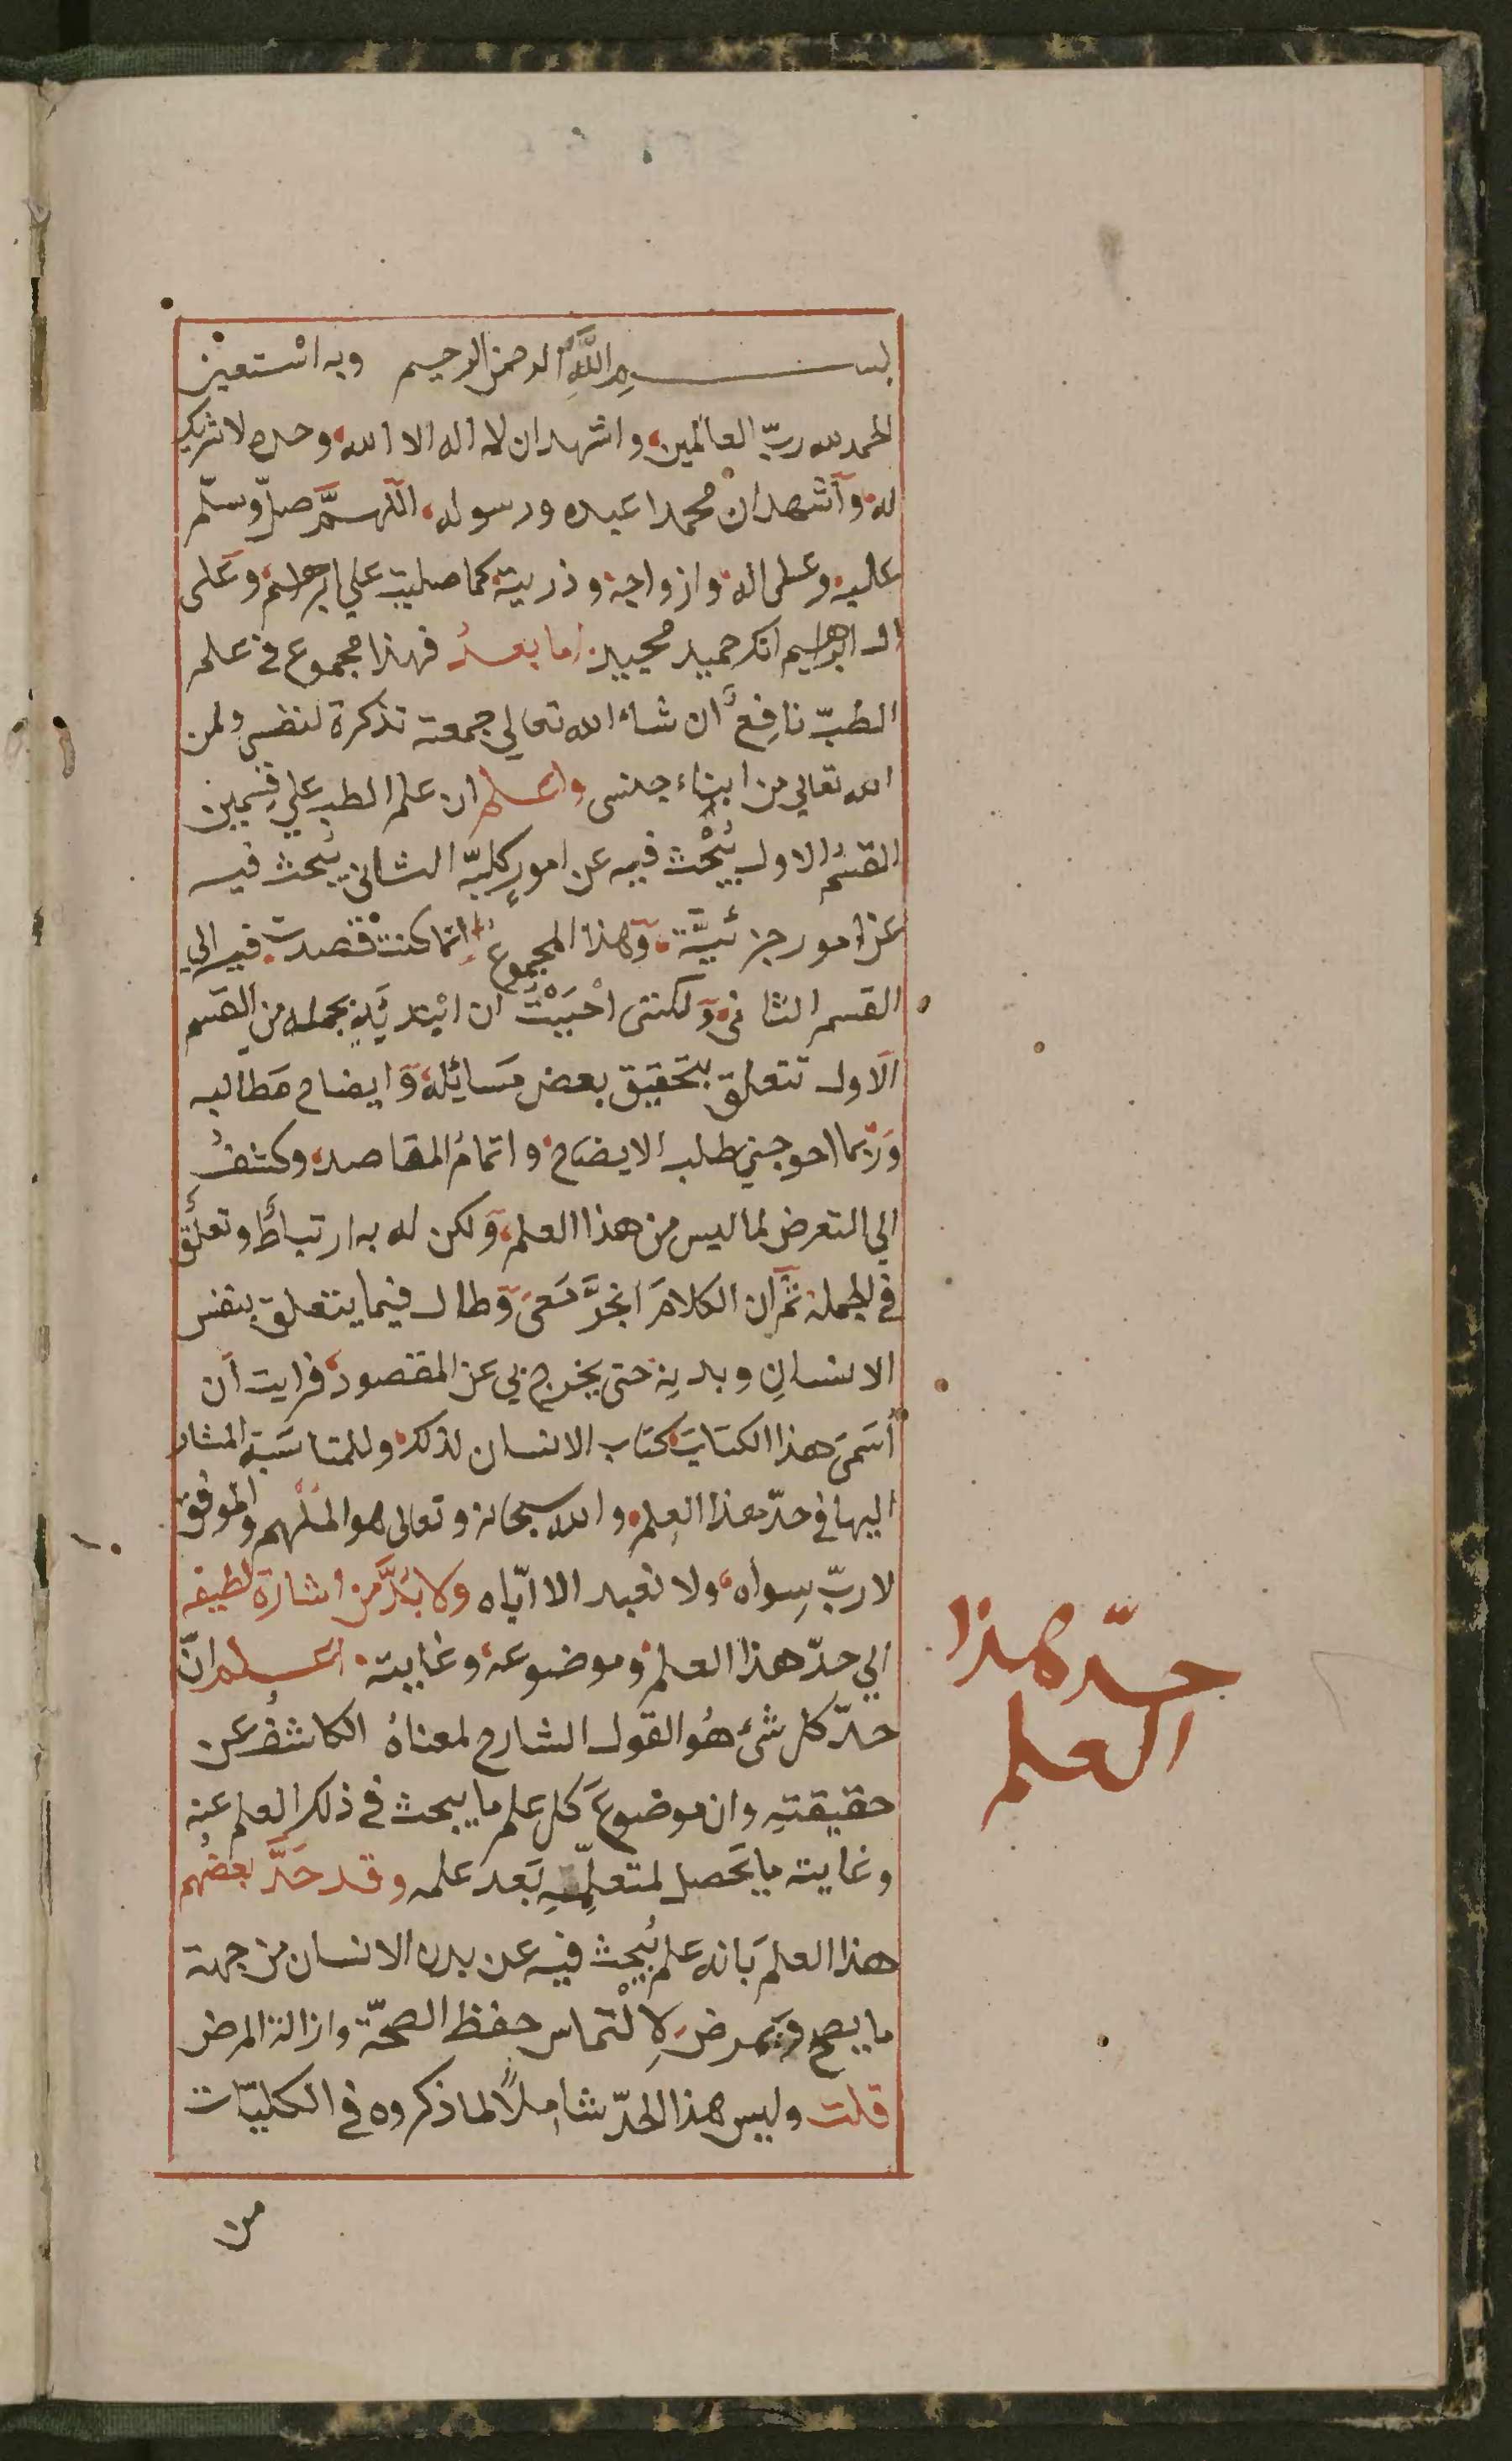 بسم الله الرحمن الرحيم وبه استعين
الحمد لله ربّ العالمين، واشهد ان لا اله الا الله، وحده لا شريك
له، وأشهد ان محمدا عبده ورسوله، اللهمَّ صلّ وسلّم
عليه، وعلى اله، وازواجه، وذريته كما صليت علي ابرهيم، وعلى
ال ابرهيم انك حميد مجيد. اما بعدُ فهذا مجموع في علم
الطبّ نافِعٌ ان شاء الله تعالي جمعته تذكرة لنفسي ولمن
الله تعالي من ابناء جنسي واعلم ان علم الطب علي قسمين
القسمُ الاول يُبْحَث فيه عن امورٍ كليّه الثاني يُبحث فيه
عن امور جزئيَّة، وهذا المجموع إنّما كنتُ قصدت فيه الي
القسم الثاني، ولكنني احْبَبْتُ ان ابْتدئَ بجمله من القسم
الاول تتعلق بتحقيق بعض مَسائِله، وَايضاح مَطالبه
وَرُبما احوجني طلب الايضاح، واتمامُ المقاصد، وكشفُ
الي التعرض لما ليس من هذا العلم، وَلكن له به ارتباطٌ وتعلّقٌ
في الجملة ثمَّ ان الكلامَ انجرَّ مَعىَ وَطال فيما يتعلق بنفس
الانسانِ وبدنِه حتى يخرج بي عن المقصود، فرايت ان
أسَمىَ هذا الكتابَ كتاب الانسان لذلك، وللمناسَبة المشار
اليها في حدّ هذا العِلم، والله سبحانه وتعالى هو المُلْهم والموفق
لا ربّ سِواه، ولا نعبد الا ايّاه ولا بُدَّ من اشارة لطيفه
الي حدّ هذا العلم، وموضوعه، وغايته. اعلم انّ
حدّ كل شئ هُو القول الشارح لمعناهُ الكاشفُ عن
حقيقتهِ وان موضوعَ كل علم ما يبحث في ذلك العلم عنه
وغايته ما يَحصل لمتعلِّمهِ بَعد علمه وقد حَدَّ بعضُهم
هذا العلمَ بَانه علم يُبحث فيه عن بدن الانسان من جهة
ما يصح وَيمرض، لِالْتماس حفظ الصحّة وازالة المرض
قلت وليس هذا الحدّ شاملًا لما ذكروه في الكليّات
من
حدّ هذا
العلم